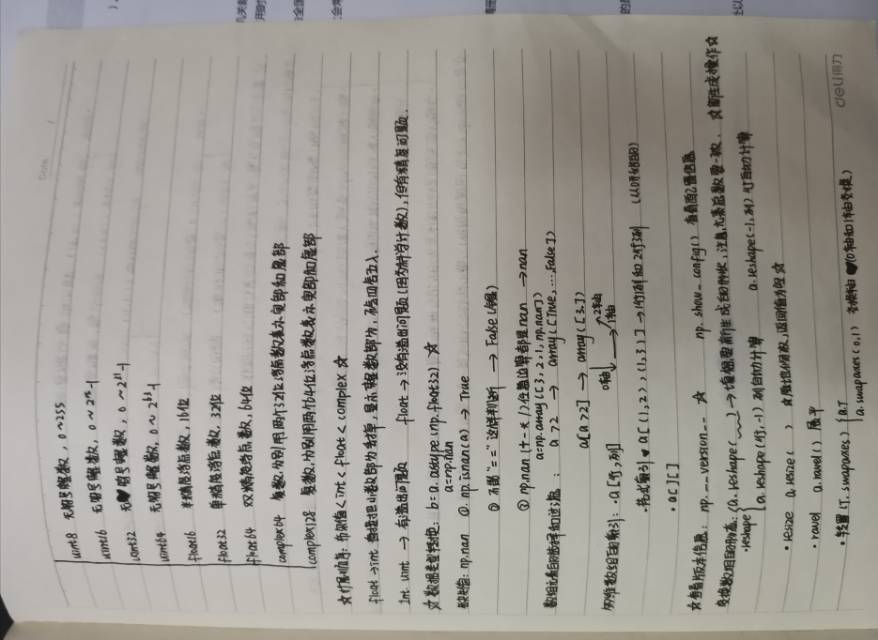 uint8 无符号整数，0~255
uint16 无符号整数，0~2¹⁶-1
uint32 无符号整数，0~2³²-1
uint64 无符号整数，0~2⁶³-1
float16 半精度浮点数，16位
float32 单精度浮点数，32位
float64 双精度浮点数，64位
complex64 复数，分别用两个32位浮点数表示实部和虚部
complex128 复数，分别用两个64位浮点数表示实部和虚部
☆优先顺序：布尔值<int<float<complex ☆
float→int 直接把小数部分去掉，显示整数部分，不四舍五入.
int uint → 有溢出问题 float → 没有溢出问题(因为科学计数)，但有精度问题.
☆数据类型转换： b=a.astype(np.float32) ☆
a=np.nan
缺失值：np.nan ①. np.isnan(a) → True
② 不能"=="这样判断 → False(错误)
③ np.nan(+-×/)任意运算都是nan → nan
a=np.array([3,2,1,np.nan])
数组元素的选择和过滤： a>2 → array([True,...False])
a[a>2] → array([3.])
多维数组的索引：·a[行,列] 0轴↓ →1轴 ↗2轴
·花式索引 a[(1,2),(1,3)] → 1行1列和2行3列 (从0开始的)
·a[][]
☆查看版本信息：np.__version__ ☆ np.show_config() 查看配置信息
变换数组的形态：
·reshape
{a.reshape( ) →
a.reshape(行,-1) 列自动计算 a.reshape(-1,列) 行自动计算
·resize a.resize( ) 返回值为空☆
·ravel a.ravel() 展平
·转置(T, swapaxes) {a.T
a.swapaxes(0,1) 变换轴 (0轴和1轴变换)
deli得力
Date